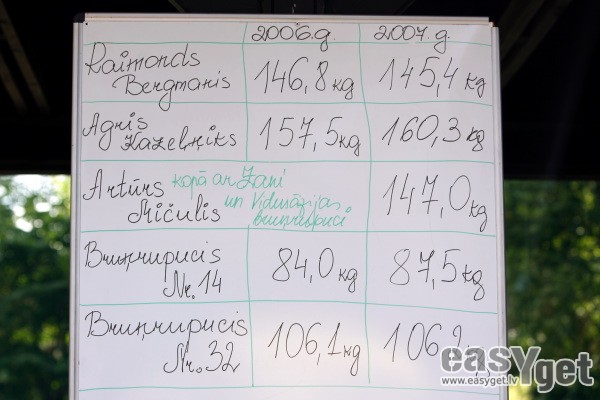 2006.g. 2007.g.
Raimonds
Bergmanis 146,8 kg 145,4 kg
Agris
Kazeļņiks 157,5 kg 160,3 kg
Artūrs kopā ar Zani
Ričulis un Vidusāzijas
bruņrupuci 147,0 kg
Bruņrupucis
Nr.14 84,0 kg 87,5 kg
Bruņrupucis
Nr.32 106,1 kg 106,2
easyget
www.easyget.lv